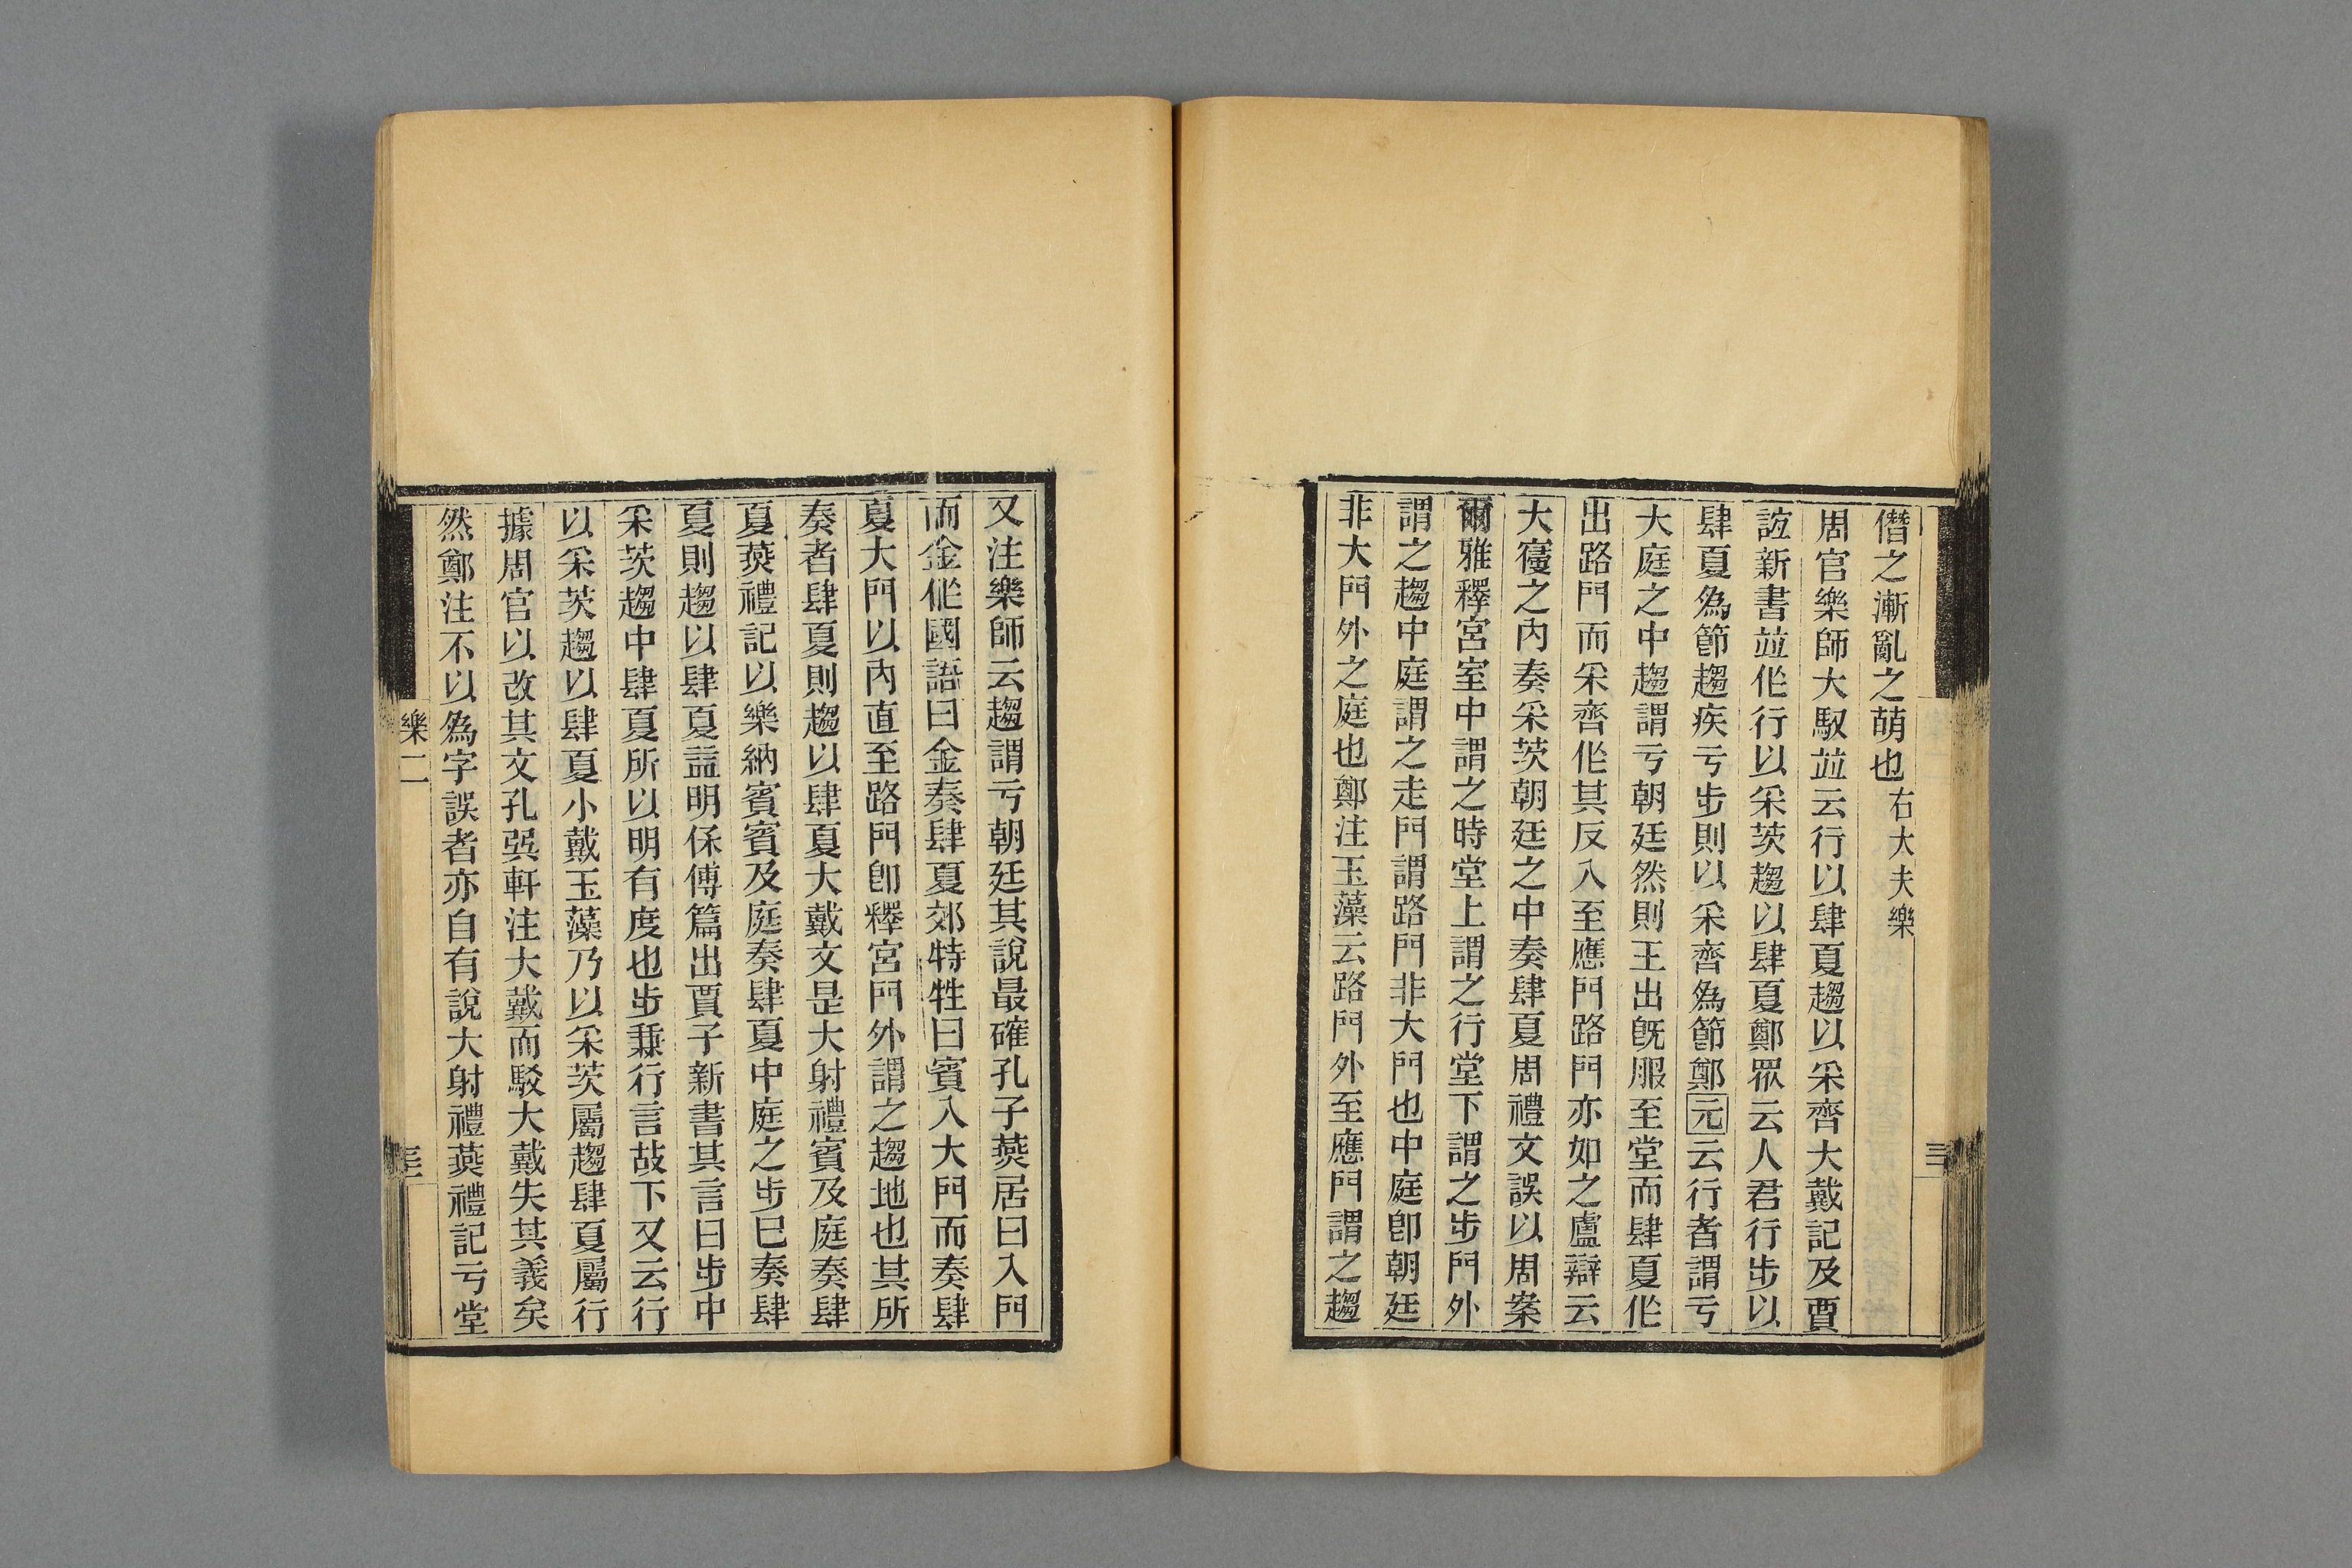 僭之漸亂之萌也右大夫樂
周官樂師大馭竝云行以肆夏趨以采齊大戴記及賈
誼新書竝作行以采茨趨以肆夏鄭眾云人君行步以
肆夏為節趨疾亏步則以采齊為節鄭元云行者謂亏
大庭之中趨謂亏朝廷然則王出旣服至堂而肆夏作
出路門而采齊作其反入至應門路門亦如之盧辯云
大寢之內奏采茨朝廷之中奏肆夏周禮文誤以周案
爾雅釋宮室中謂之時堂上謂之行堂下謂之步門外
謂之趨中庭謂之走門謂路門非大門也中庭卽朝廷
非大門外之庭也鄭注玉藻云路門外至應門謂之趨
又注樂師云趨謂亏朝廷其說最確孔子燕居曰入門
而金作國語曰金奏肆夏郊特牲曰賓入大門而奏肆
夏大門以內直至路門卽釋宮門外謂之趨地也其所
奏者肆夏則趨以肆夏大戴文是大射禮賓及庭奏肆
夏燕禮記以樂納賓賓及庭奏肆夏中庭之步巳奏肆
夏則趨以肆夏益明保傅篇出賈子新書其言曰步中
采茨趨中肆夏所以明有度也步兼行言故下又云行
以采茨趨以肆夏小戴玉藻乃以采茨屬趨肆夏屬行
據周官以改其文孔㢲軒注大戴而駁大戴失其義矣
然鄭注不以為字誤者亦自有說大射禮燕禮記亏堂
樂二